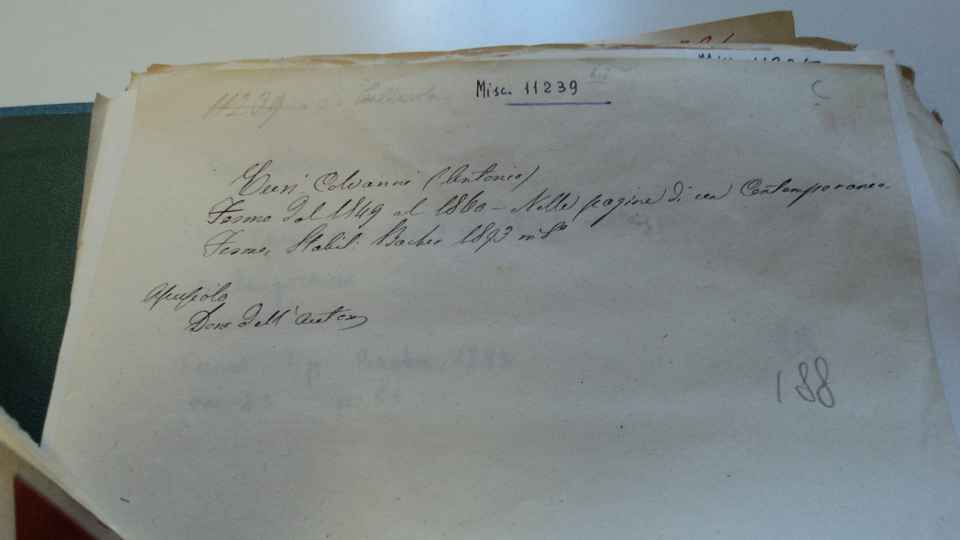 Misc. 11239
C
11239
Curi Colvanni (Antonio)
Fermo dal 1849 al 1860 - Nelle pagine di un Contemporaneo
Fermo, Stabil. Bacher 1893 in 8º
Opuscolo
Dono dell' autore
188